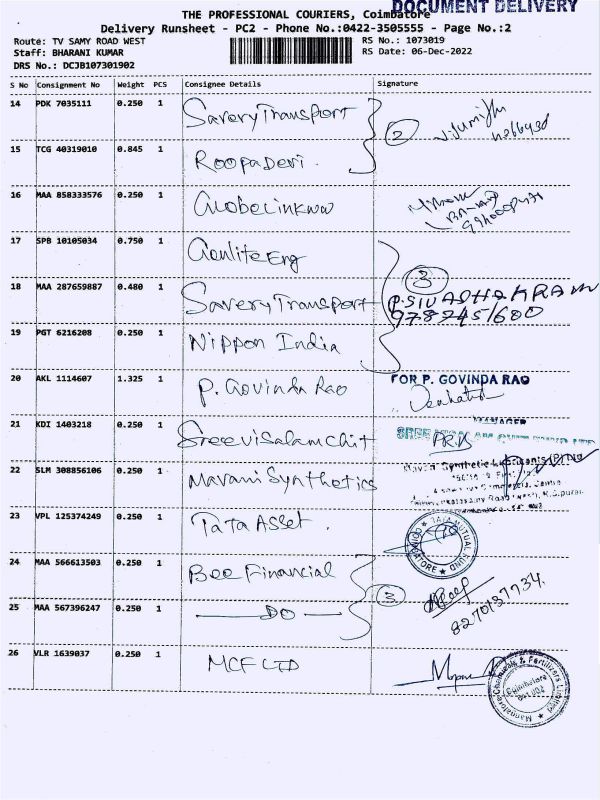 DOCUMENT DELIVERY
THE PROFESSIONAL COURIERS, Coimbatore
Delivery Runsheet - PC2 - Phone No.:0422-3505555 - Page No.:2
Route: TV SAMY ROAD WEST RS No.: 1073019
Staff: BHARANI KUMAR RS Date: 06-Dec-2022
DRS No.: DCJB107301902
S No Consignment No Weight PCS Consignee Details Signature
14 PDK 7035111 0.250 1 Savery Transport
2
15 TCG 40319010 0.845 1 Roopa Devi.
16 MAA 858333576 0.250 1 Globelinkww
17 SPB 10105034 0.750 1 Genlite Eng
3
18 MAA 287659887 0.480 1 Savery Transport
19 PGT 6216208 0.250 1 Nippon India
20 AKL 1114607 1.325 1 P. Govinda Rao FOR P. GOVINDA RAO
MANAGER
21 KDI 1403218 0.250 1 Sreevisalam Chit
22 SLM 308856106 0.250 1 Mavani Synthetics
23 VPL 125374249 0.250 1 Tata Asset. TATA MUTUAL FUND COIMBATORE
24 MAA 566613503 0.250 1 Bee Financial
3
8270137734.
25 MAA 567396247 0.250 1 — DO —
26 VLR 1639037 0.250 1 MCF LTD
Mangalore Chemicals & Fertilizers Limited
Coimbatore